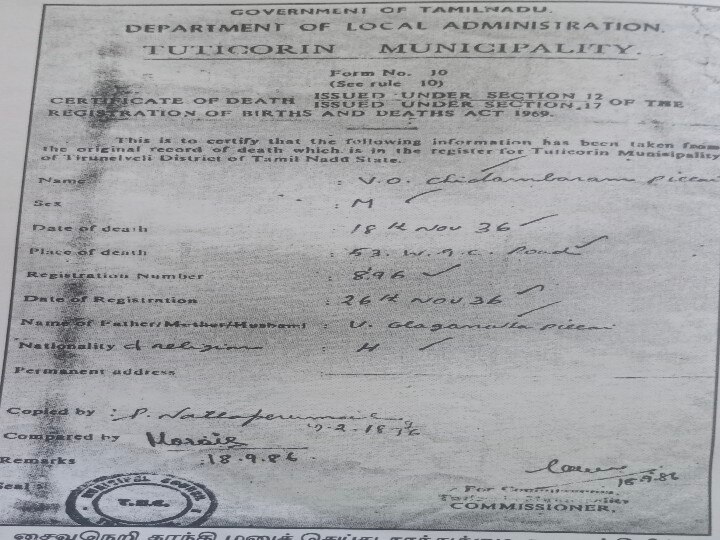 GOVERNMENT OF TAMILNADU.
DEPARTMENT OF LOCAL ADMINISTRATION.
TUTICORIN MUNICIPALITY.
Form No. 10
(See rule 10)
CERTIFICATE OF DEATH ISSUED UNDER SECTION 12
ISSUED UNDER SECTION, 17 OF THE
REGISTRATION OF BIRTHS AND DEATHS ACT 1969.
This is to certify that the following information has been taken from
the original record of death which is in the register for Tuticorin Municipality
of Tirunelveli District of Tamil Nadd State.
Name : V.O. Chidambaram Piccai
Sex : M
Date of death : 18th Nov 36
Place of death : 53. W.G.C. Road
Registration Number : 896
Date of Registration : 26th Nov 36
Name of Father/Mother/Husband : V. Olaganatha Piccai
Nationality & religion : H
Permanent address
Copied by : P. Nallaperumal
Compared by
Remarks : 18.9.86
Seal
T.M.C.
18.9.86
For Commissioner.
COMMISSIONER.